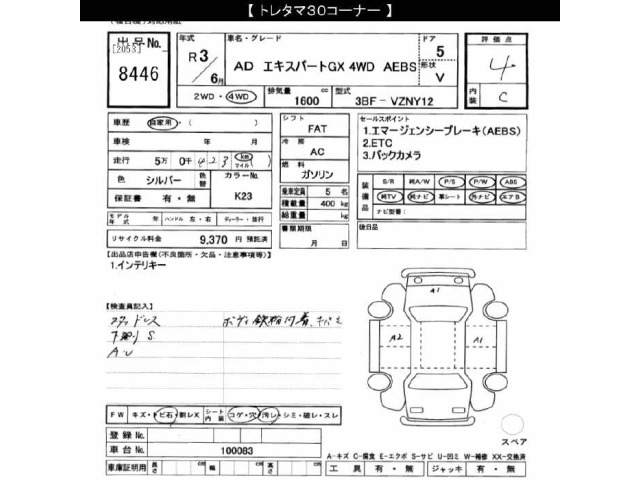 【 トレタマ30コーナー 】
出品No.
[2053]
8446
年式
R 3
6月
車名・グレード
AD エキスパートGX 4WD AEBS
ドア
5
形状
V
2WD・4WD
排気量
1600 cc
型式
3BF - VZNY12
評価点
4
内装
C
車歴
自家用・( )
車検 年 月
走行 5万 0千 423 km マイル
色 シルバー
色替
カラーNo.
K23
保証書 有・無
モデル年式 年 ハンドル 左・右 ディーラー・並行
リサイクル料金 9,370 円 預託済
シフト
FAT
冷房
AC
燃料
ガソリン
乗車定員 5 名
積載量 400 kg
総重量 kg
書類期限
月 日
セールスポイント
1.エマージェンシーブレーキ(AEBS)
2.ETC
3.バックカメラ
装備品
S/R 純A/W P/S P/W ABS
純TV 純ナビ 革シート 外ナビ エアB
ナビ型番:
後日品
【出品店申告欄(不良箇所・欠品・注意事項等)】
1.インテリキー
【検査員記入】
S
AU
A1
A2
A1
FW キズ・ヒビ石・割レX
シート内装
コゲ・穴 汚レ・シミ・破レ・スレ
登録No.
車台No. 100083
車庫証明用 長さ cm 幅 cm 高さ cm
スペア
A-キズ C-腐食 E-エクボ S-サビ U-凹ミ W-補修 XX-交換済
工具 有・無 ジャッキ 有・無